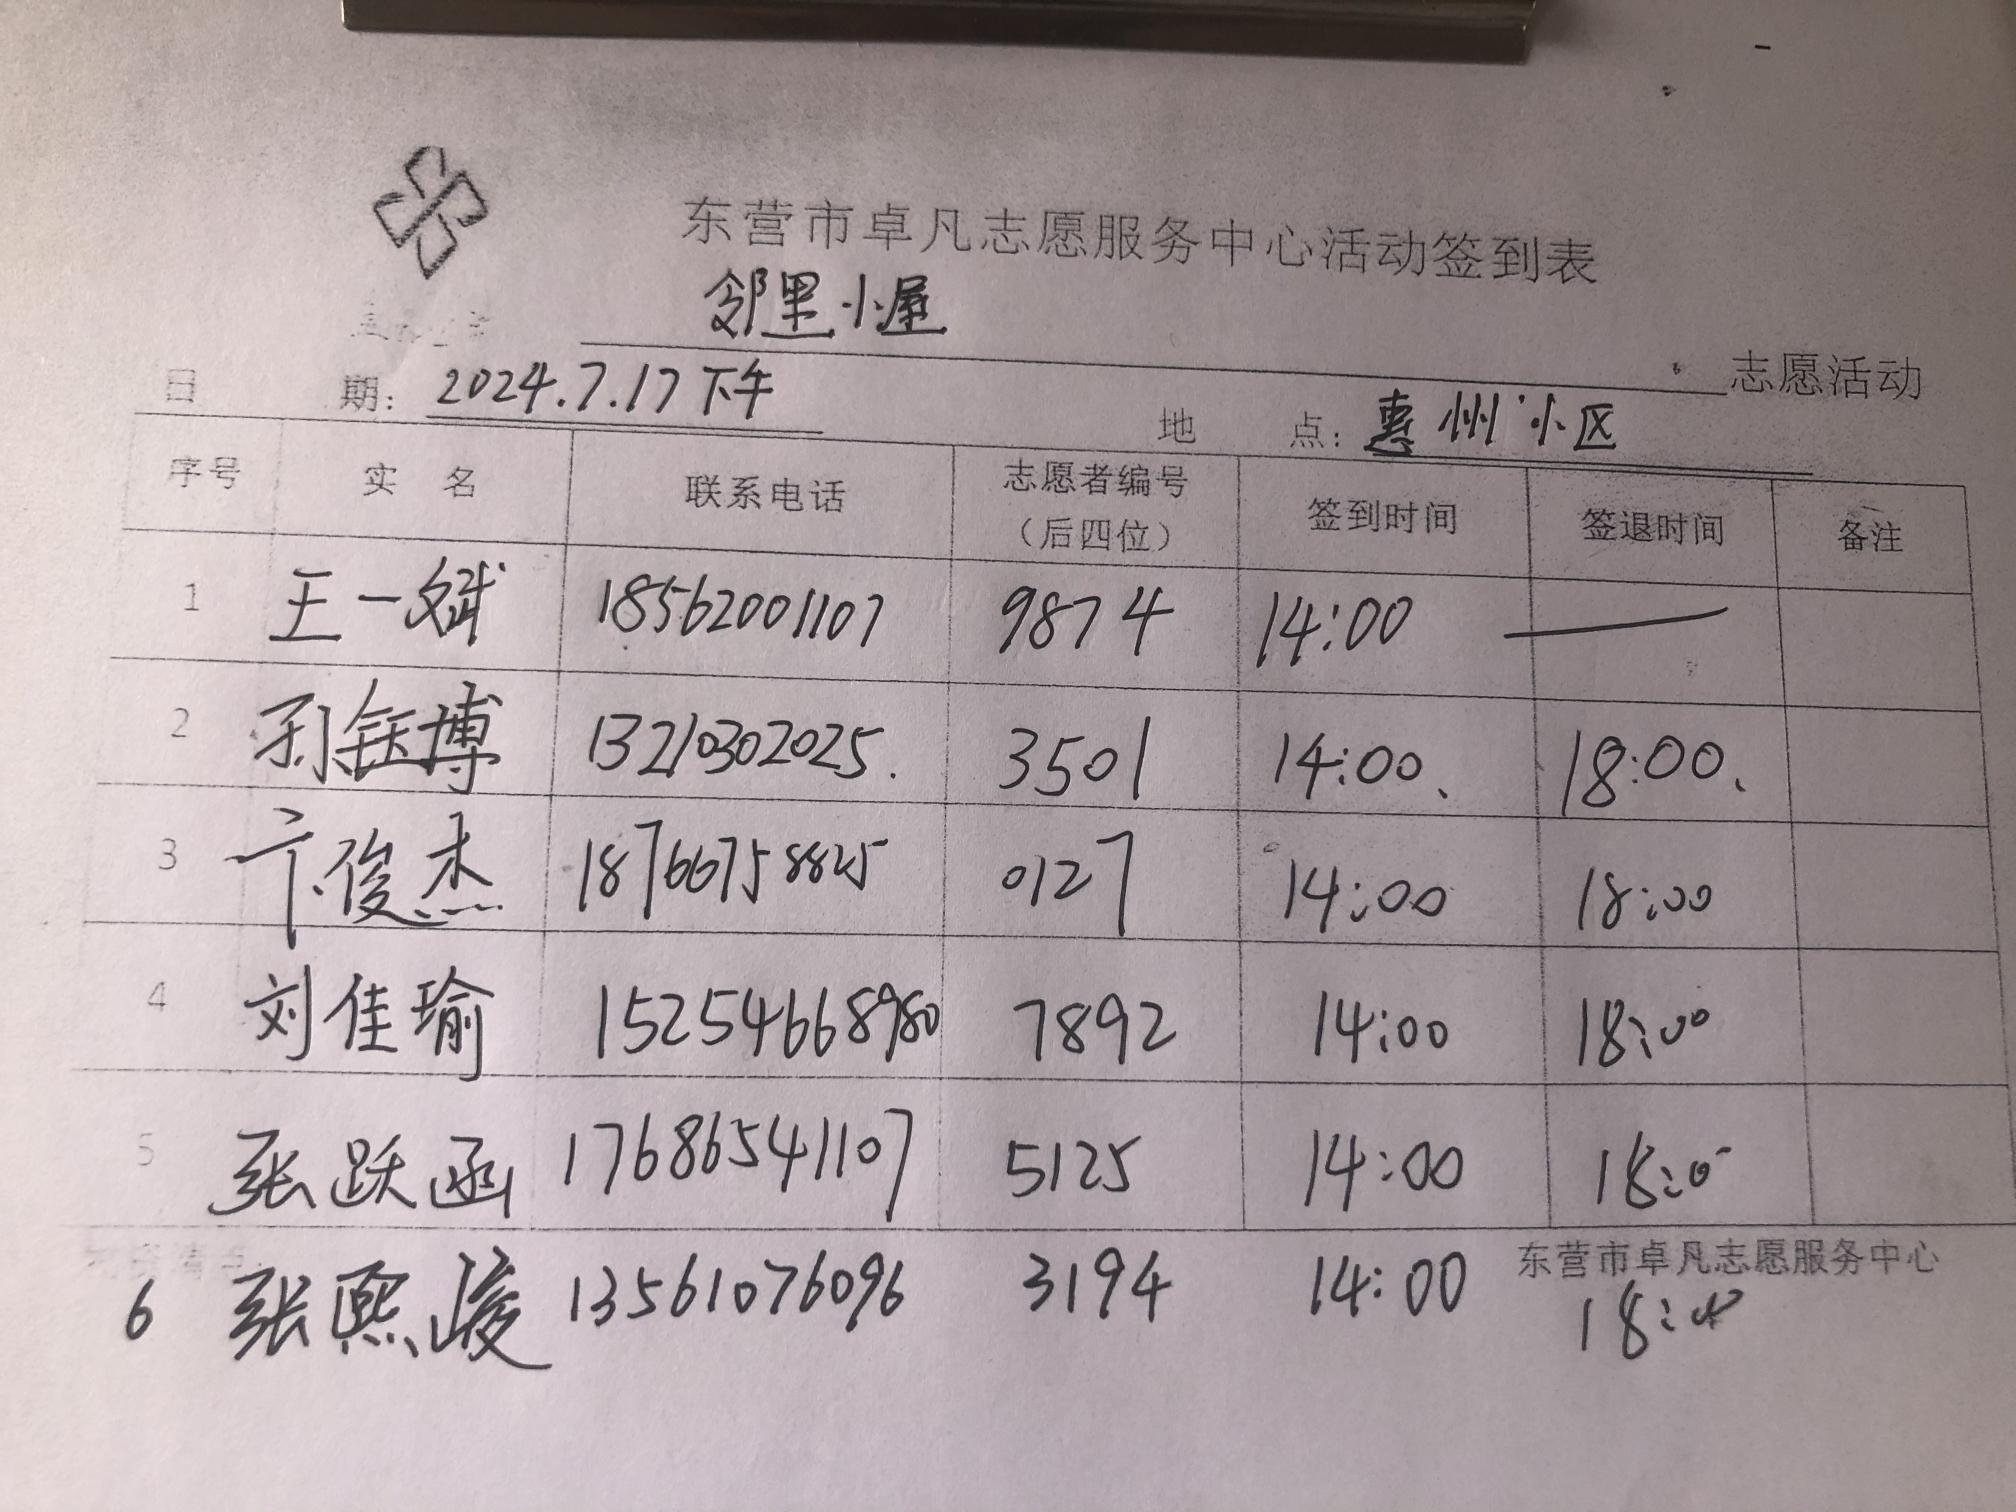 东营市卓凡志愿服务中心活动签到表
邻里小屋 志愿活动
日 期: 2024.7.17下午 地 点: 惠州小区
序号 实 名 联系电话 志愿者编号（后四位） 签到时间 签退时间 备注
1 王一斌 18562001107 9874 14:00 —
2 孙钰博 13210302025. 3501 14:00、 18:00、
3 卞俊杰 18766758825 0127 14:00 18:00
4 刘佳瑜 15254668980 7892 14:00 18:00
5 张跃函 17686541107 5125 14:00 18:00
东营市卓凡志愿服务中心
6 张熙峻 13561076096 3194 14:00 18:00